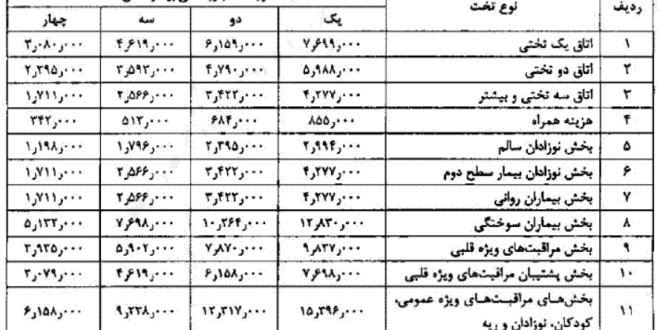 ردیف نوع تخت یک دو سه چهار
۱ اتاق یک تختی ۷٫۶۹۹٫۰۰۰ ۶٫۱۵۹٫۰۰۰ ۴٫۶۱۹٫۰۰۰ ۳٫۰۸۰٫۰۰۰
۲ اتاق دو تختی ۵٫۹۸۸٫۰۰۰ ۴٫۷۹۰٫۰۰۰ ۳٫۵۹۳٫۰۰۰ ۲٫۳۹۵٫۰۰۰
۳ اتاق سه تختی و بیشتر ۴٫۲۷۷٫۰۰۰ ۳٫۴۲۲٫۰۰۰ ۲٫۵۶۶٫۰۰۰ ۱٫۷۱۱٫۰۰۰
۴ هزینه همراه ۸۵۵٫۰۰۰ ۶۸۴٫۰۰۰ ۵۱۳٫۰۰۰ ۳۴۲٫۰۰۰
۵ بخش نوزادان سالم ۲٫۹۹۴٫۰۰۰ ۲٫۳۹۵٫۰۰۰ ۱٫۷۹۶٫۰۰۰ ۱٫۱۹۸٫۰۰۰
۶ بخش نوزادان بیمار سطح دوم ۴٫۲۷۷٫۰۰۰ ۳٫۴۲۲٫۰۰۰ ۲٫۵۶۶٫۰۰۰ ۱٫۷۱۱٫۰۰۰
۷ بخش بیماران روانی ۴٫۲۷۷٫۰۰۰ ۳٫۴۲۲٫۰۰۰ ۲٫۵۶۶٫۰۰۰ ۱٫۷۱۱٫۰۰۰
۸ بخش بیماران سوختگی ۱۲٫۸۳۰٫۰۰۰ ۱۰٫۲۶۴٫۰۰۰ ۷٫۶۹۸٫۰۰۰ ۵٫۱۳۲٫۰۰۰
۹ بخش مراقبت‌های ویژه قلبی ۹٫۸۳۷٫۰۰۰ ۷٫۸۷۰٫۰۰۰ ۵٫۹۰۲٫۰۰۰ ۳٫۹۳۵٫۰۰۰
۱۰ بخش پشتیبان مراقبت‌های ویژه قلبی ۷٫۶۹۸٫۰۰۰ ۶٫۱۵۸٫۰۰۰ ۴٫۶۱۹٫۰۰۰ ۳٫۰۷۹٫۰۰۰
۱۱ بخش‌های مراقبت‌های ویژه عمومی، ۱۵٫۳۹۶٫۰۰۰ ۱۲٫۳۱۷٫۰۰۰ ۹٫۲۳۸٫۰۰۰ ۶٫۱۵۸٫۰۰۰
کودکان، نوزادان و ریه